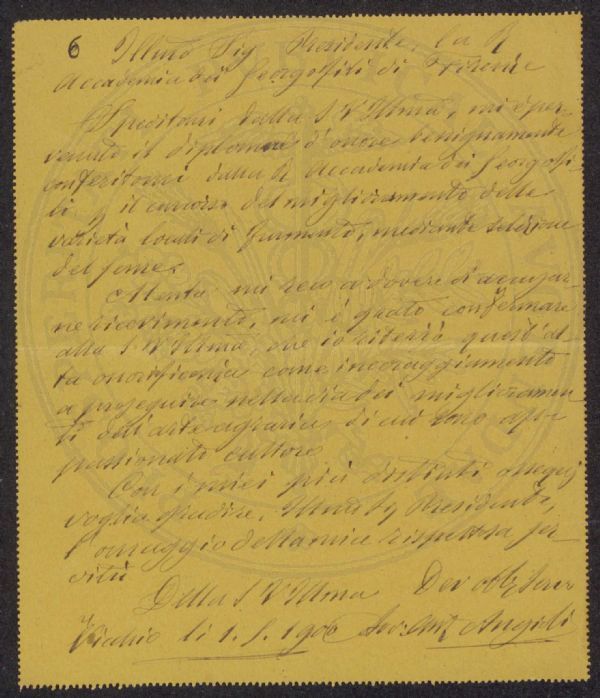 6 Illmo Sig. Presidente, la R.
Accademia dei Georgofili di Firenze
Speditomi dalla S. V. Illma, mi è per-
venuto il diploma d'onore benignamente
conferitomi dalla R. Accademia dei Georgofi-
li il concorso del miglioramento delle
varietà locali di frumento, mediante selezione
del seme.
Mentre mi reco a dovere di accusar-
ne ricevimento, mi è grato confermare
alla S. V. Illma, che io riterrò quest'al-
ta onorificenza come incoraggiamento
a proseguire nella via dei miglioramen-
ti dell'arte agraria, di cui sono ap-
passionato cultore.
Con i miei più distinti ossequi
voglia gradire, Illmo Sig. Presidente,
l'omaggio della mia rispettosa ser-
vitù
Della S. V. Illma Dev. obb. Servo
Vicchio li 1. 5. 1906 Angeli